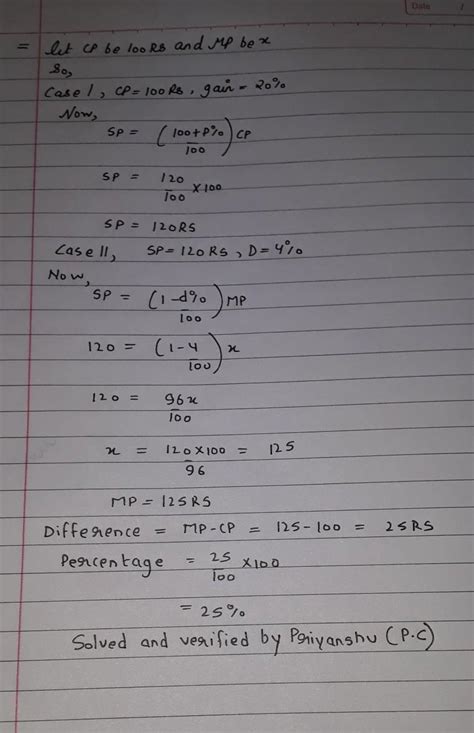 Date
= let CP be 100 RS and MP be x
So,
Case I, CP = 100 Rs, gain = 20%
Now,
SP = (100+P%/100) CP
SP = 120/100 × 100
SP = 120RS
Case II, SP = 120 RS, D = 4%
Now,
SP = (1-d%/100) MP
120 = (1-4/100) x
120 = 96x/100
x = 120×100/96 = 125
MP = 125RS
Difference = MP-CP = 125-100 = 25RS
Percentage = 25/100 ×100
= 25%
Solved and verified by Priyanshu (P.C)